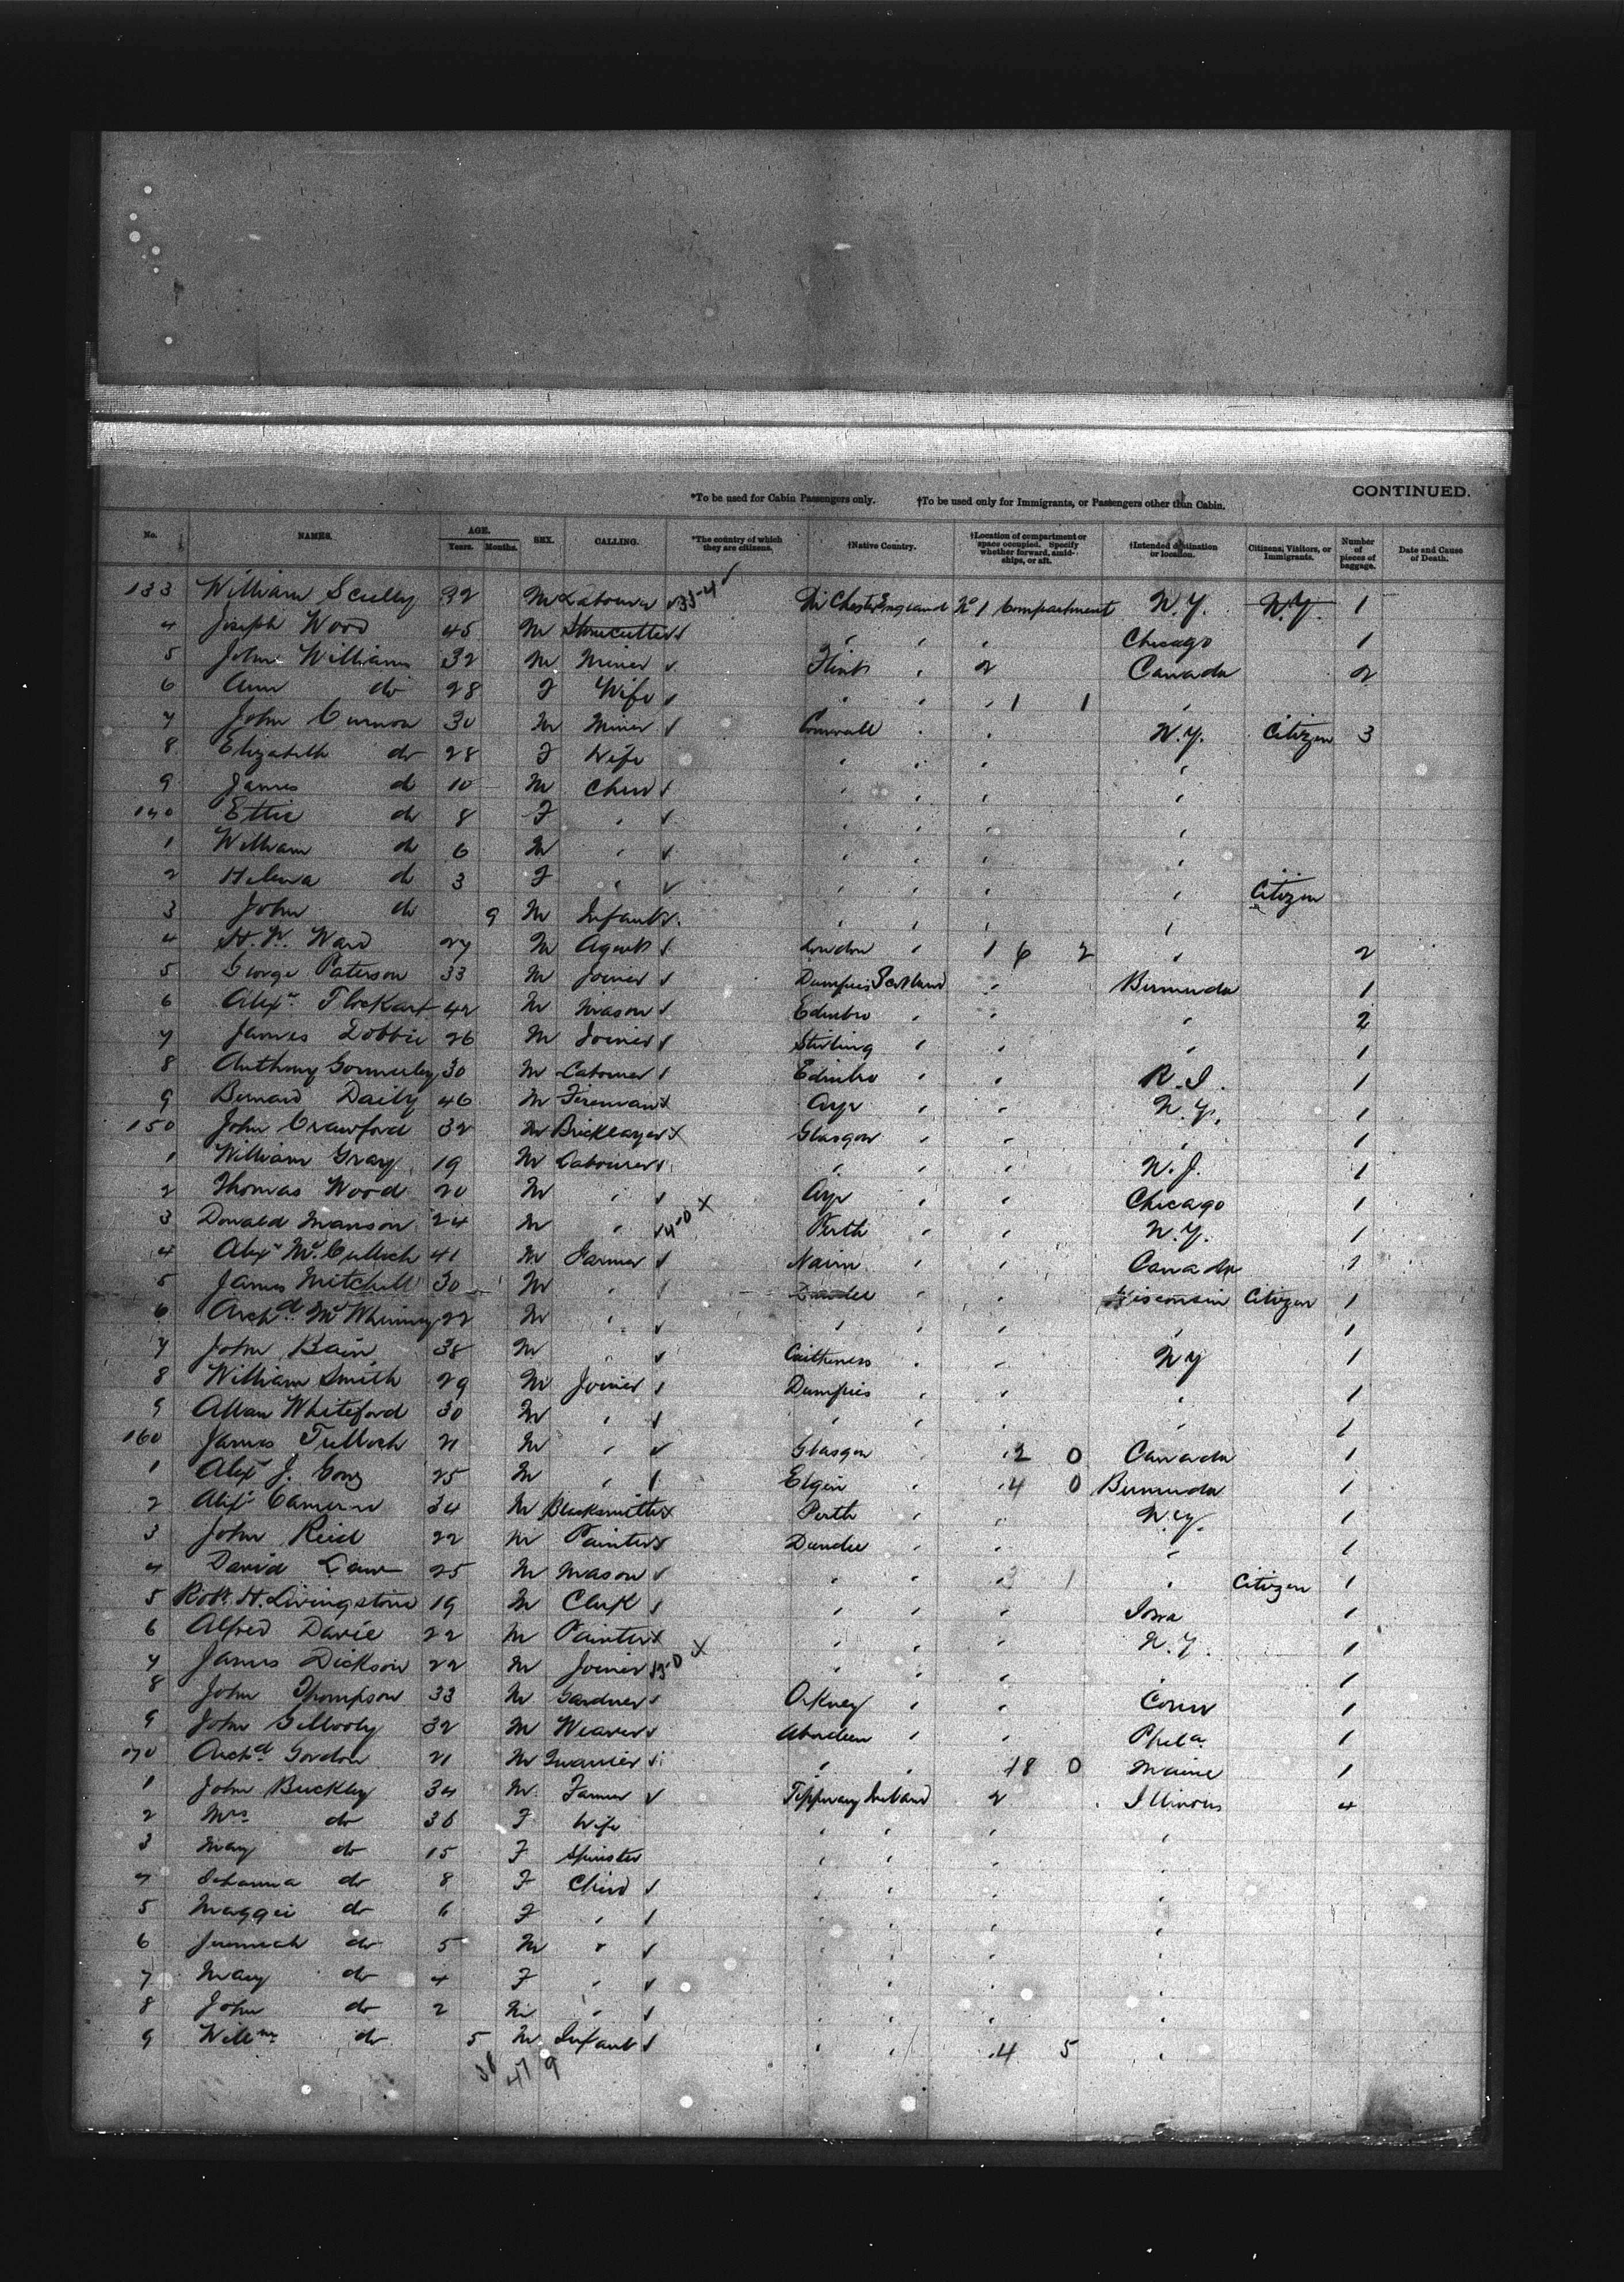 CONTINUED.
*To be used for Cabin Passengers only. †To be used only for Immigrants, or Passengers other than Cabin.
No. NAMES. AGE. Years. Months. SEX. CALLING. *The country of which they are citizens. †Native Country. †Location of compartment or space occupied. Specify whether forward, amidships, or aft. †Intended destination or location. Citizens, Visitors, or Immigrants. Number of pieces of baggage. Date and Cause of Death.
133 William Scully 32 M Labourer England No 1 Compartment N.Y. N.Y. 1
4 Joseph Wood 45 M Stonecutter " " " Chicago 1
5 John Williams 32 M Miner Flint " 2 Canada 2
6 Ann do 28 F Wife " " " 1 1 "
7 John Curnow 30 M Miner Cornwall " " N.Y. Citizen 3
8 Elizabeth do 28 F Wife " " " "
9 James do 10 M Child " " " "
140 Ettie do 8 F " " " " "
1 William do 6 M " " " " "
2 Helena do 3 F " " " " " Citizen
3 John do 9 M Infant " " " "
4 H. W. Ward 27 M Agent London " 1 6 2 " 2
5 George Paterson 33 M Joiner Dumfries Scotland " Bermuda 1
6 Alexr Flockart 42 M Mason Edinbro " " " 2
7 James Dobbie 26 M Joiner Stirling " " " 1
8 Anthony Gormerley 30 M Labourer Edinbro " " R.I. 1
9 Bernard Daily 46 M Fireman Ayr " " N.Y. 1
150 John Crawford 32 M Bricklayer Glasgow " " " 1
1 William Gray 19 M Labourer " " " N.J. 1
2 Thomas Wood 20 M " Ayr " " Chicago 1
3 Donald Manson 24 M " Perth " " N.Y. 1
4 Alexr McCulloch 41 M Farmer Nairn " " Canada 1
5 James Mitchell 30 M " Dundee " Wisconsin Citizen 1
6 Archd McWhinney 22 M " " " " " 1
7 John Bain 38 M " Caithness " " N Y 1
8 William Smith 29 M Joiner Dumfries " " " 1
9 Allan Whiteford 30 M " " " " 1
160 James Tulloch 21 M " Glasgow 2 0 Canada 1
1 Alexr J. 25 M " Elgin " 4 0 Bermuda 1
2 Alexr Cameron 34 M Blacksmith Perth " " N.Y. 1
3 John Reid 22 M Painter Dundee " " " 1
4 David Law 25 M Mason " " 3 1 " Citizen 1
5 Robt. H. Livingstone 19 M Clerk " " " Iowa 1
6 Alfred Davie 22 M Painter " " " N.Y. 1
7 James Dickson 22 M Joiner " " " 1
8 John Thompson 33 M Gardner Orkney " " Conn 1
9 John Gillooly 32 M Weaver Aberdeen " " Phila 1
170 Archd Gordon 21 M Quarrier " " 18 0 Maine 1
1 John Buckley 34 M Farmer Tipperary Ireland 2 Illinois 4
2 Mrs do 36 F Wife " " " "
3 May do 15 F Spinster " " " "
4 Johanna do 8 F Child " " " "
5 Maggie do 6 F " " " " "
6 Jeremiah do 5 M " " " " "
7 Mary do 4 F " " " " "
8 John do 2 M " " " " "
9 Willm do 5 M Infant " " 4 5 "
38 47 9